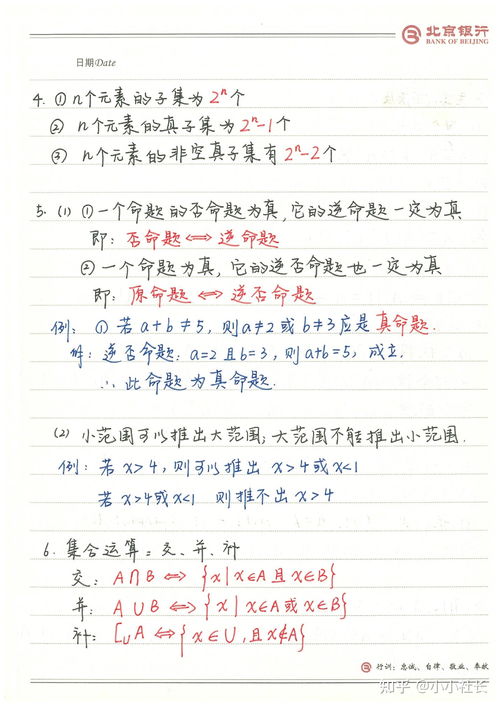 北京银行
BANK OF BEIJING
日期/Date
4. ① n个元素的子集为2ⁿ个
② n个元素的真子集为2ⁿ-1个
③ n个元素的非空真子集有2ⁿ-2个
5. (1) ①一个命题的否命题为真,它的逆命题一定为真
即: 否命题⟺逆命题
②一个命题为真,它的逆否命题也一定为真
即: 原命题⟺逆否命题
例: ① 若a+b≠5, 则a≠2或b≠3应是真命题.
解: 逆否命题: a=2且b=3, 则a+b=5, 成立.
∴此命题为真命题.
(2) 小范围可以推出大范围; 大范围不能推出小范围.
例: 若x>4, 则可以推出 x>4或x<1
若x>4或x<1 则推不出x>4
6. 集合运算: 交、并、补
交: A∩B ⟺ {x|x∈A且x∈B}
并: A∪B ⟺ {x|x∈A或x∈B}
补: ∁ᵤA ⟺ {x∈U, 且x∉A}
行训: 忠诚、自律、敬业、奉献
知乎 @小小社长